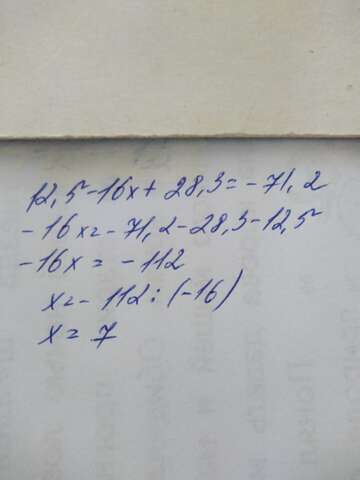 12,5-16x+28,3=-71,2
-16x=-71,2-28,3-12,5
-16x=-112
x=-112:(-16)
x=7